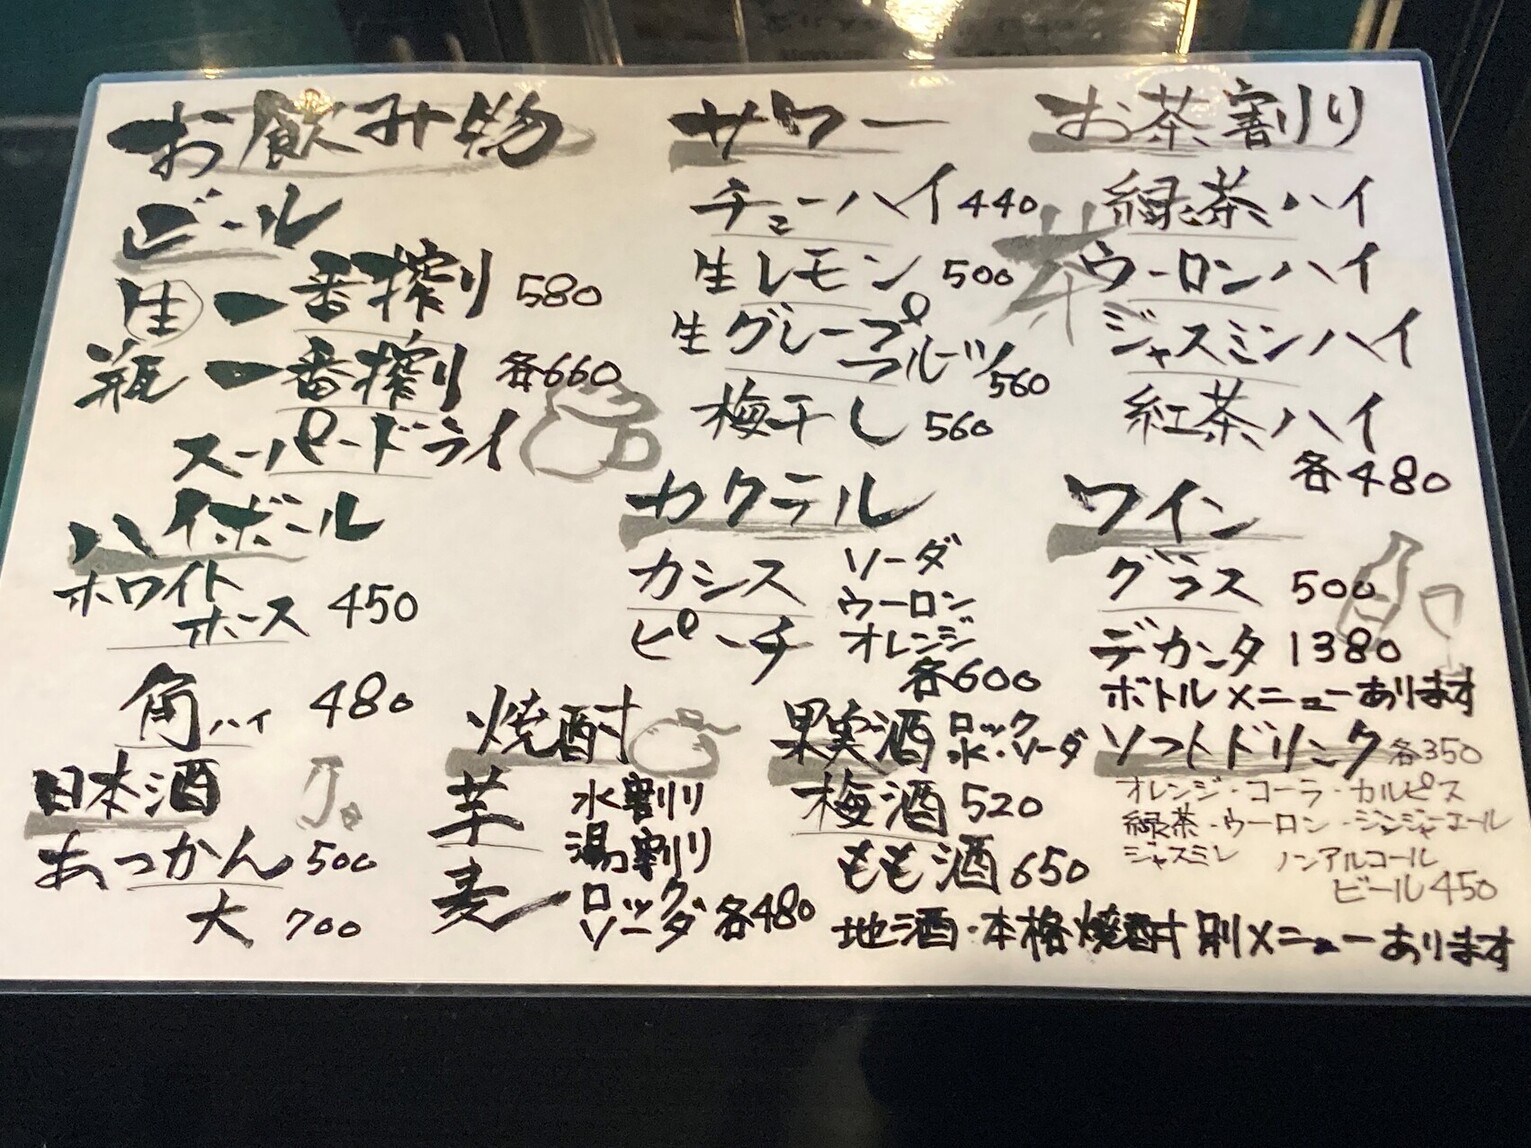 お飲み物
ビール
生 一番搾り 580
瓶 一番搾り 各660
スーパードライ
ハイボール
ホワイト
ホース 450
角ハイ 480
日本酒
あつかん 500
大 700
サワー
チューハイ 440
生レモン 500
生グレープ
フルーツ 560
梅干し 560
カクテル
カシス ソーダ
ウーロン
ピーチ オレンジ
各600
焼酎
芋 水割り
湯割り
麦 ロック
ソーダ 各480
果実酒 ロック
水・ソーダ
梅酒 520
もも酒 650
お茶割り
茶
緑茶ハイ
ウーロンハイ
ジャスミンハイ
紅茶ハイ
各480
ワイン
グラス 500
デカンタ 1380
ボトルメニューあります
ソフトドリンク 各350
オレンジ・コーラ・カルピス
緑茶・ウーロン・ジンジャーエール
ジャスミン ノンアルコール
ビール 450
地酒・本格焼酎 別メニューあります